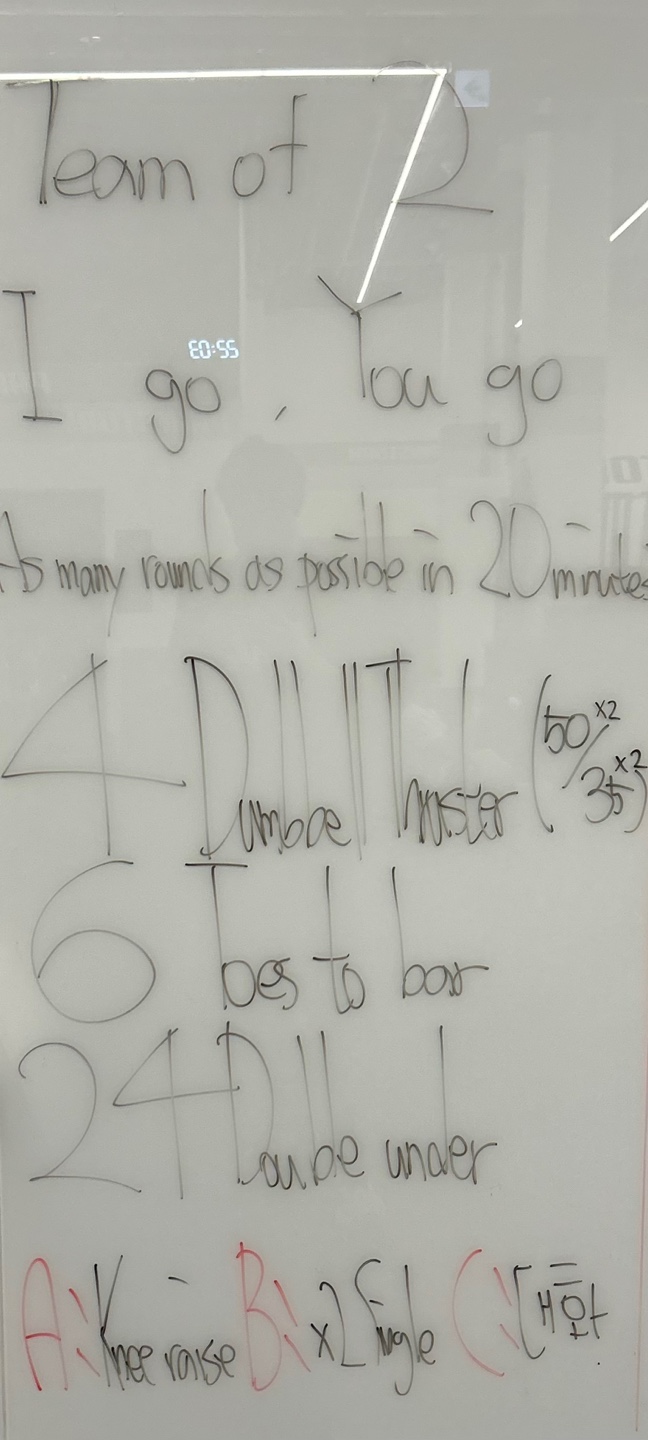 Team of 2
I go, You go
As many rounds as possible in 20 minutes
4 Dumbbell Thruster (50x2/35x2)
6 Toes to bar
24 Double under
A: Knee raise B: x2 Single C: